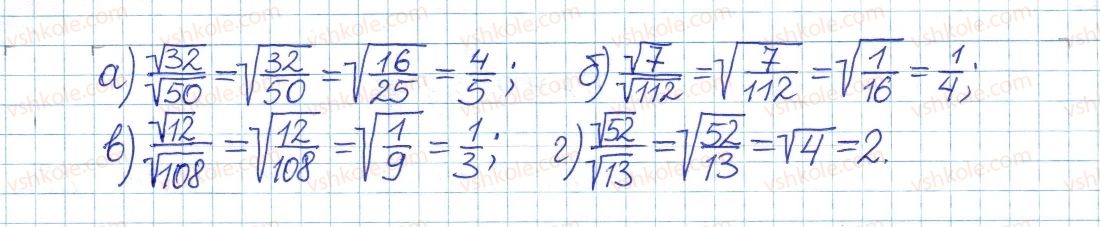 а) √32/√50 = √(32/50) = √(16/25) = 4/5; б) √7/√112 = √(7/112) = √(1/16) = 1/4;
в) √12/√108 = √(12/108) = √(1/9) = 1/3; г) √52/√13 = √(52/13) = √4 = 2.